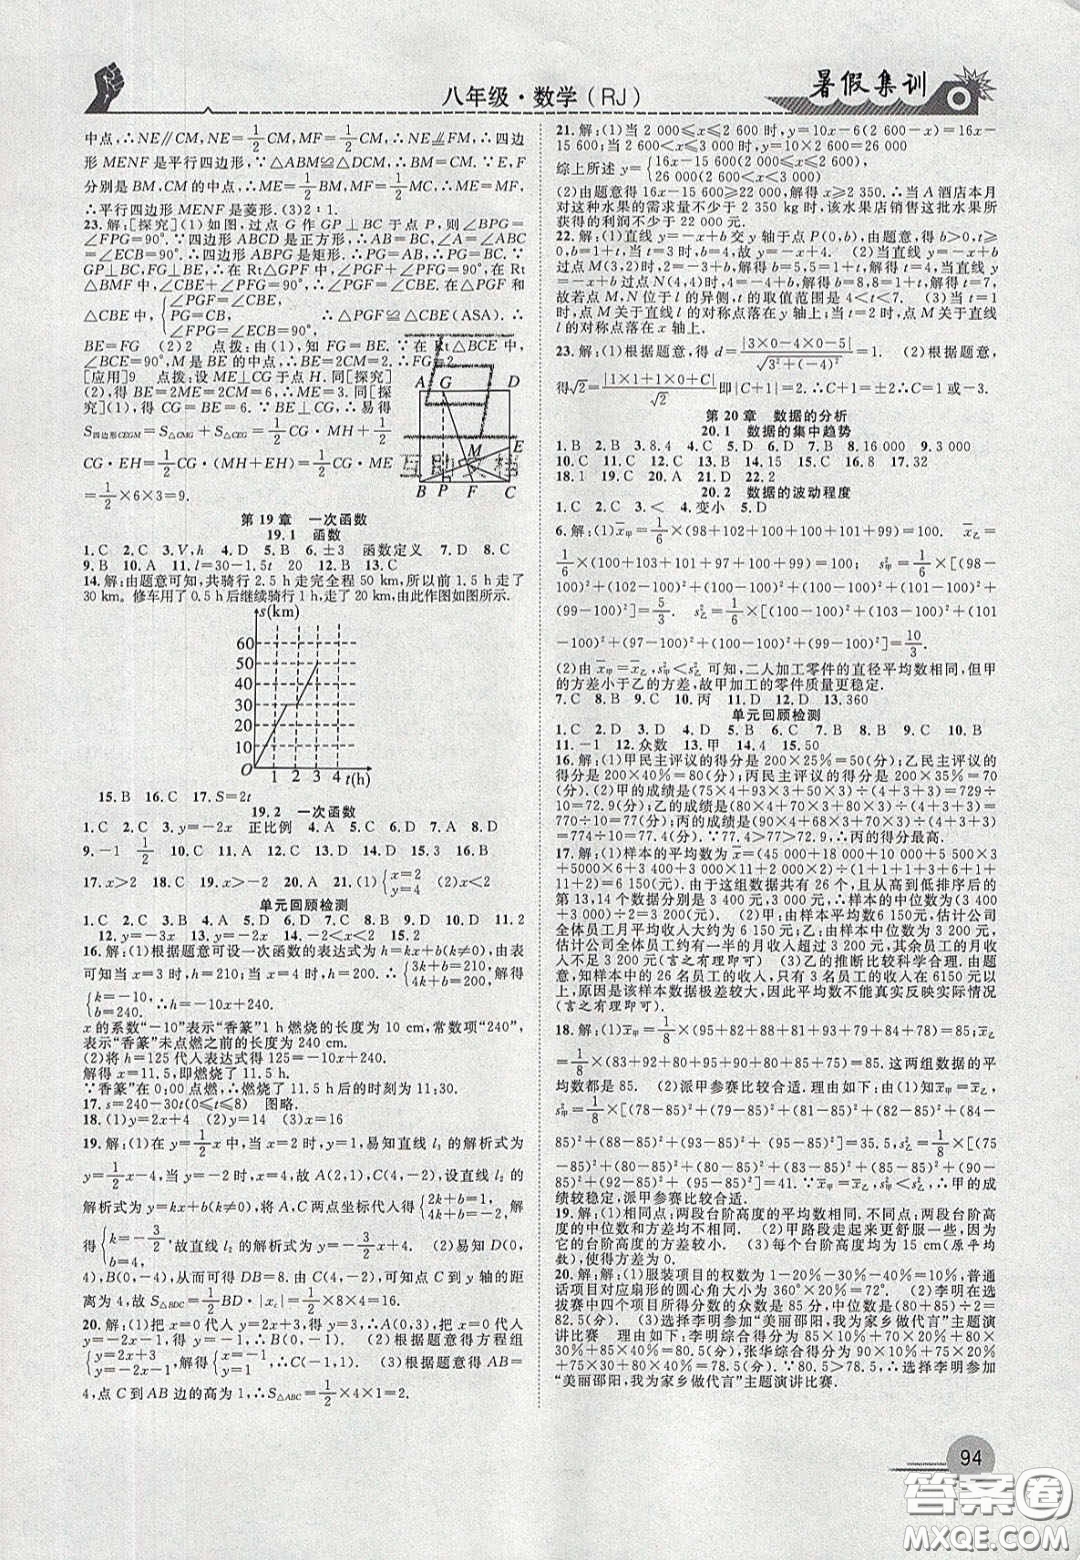 八年级·数学(RJ)
暑假集训
中点,∴NE∥CM,NE=1/2CM,MF=1/2CM,∴NE⫽FM,∴四边
形MENF是平行四边形,∵△ABM≌△DCM,∴BM=CM.∵E,F
分别是BM,CM的中点,∴ME=1/2BM,MF=1/2MC,∴ME=MF,
∴平行四边形MENF是菱形.(3)2∶1.
23.解:[探究](1)如图,过点G作GP⊥BC于点P,则∠BPG=
∠FPG=90°.∵四边形ABCD是正方形,∴AB=BC,∠A=∠ABC
=∠ECB=90°∴四边形ABPG是矩形.∴PG=AB.∴PG=BC.∵
GP⊥BC,BE⊥FG,∴在Rt△GPF中,∠PGF+∠PFG=90°,在Rt
△BMF中,∠EBC+∠PFG=90°,∴∠PGF=∠CBE.在△PGF和
△CBE中,{∠PGF=∠CBE,
PG=CB,
∠FPG=∠ECB=90°, ∴△PGF≌△CBE(ASA).∴
BE=FG (2)2 点拨:由(1),知FG=BE.∵在Rt△BCE中,
∠BCE=90°,M是BE的中点,∴BE=2CM=2.∴FG=2
[应用]9 点拨:设ME⊥CG于点H.同[探究]
(2),得BE=2ME=2CM=6,∴ME=3.同[探
究](1),得CG=BE=6.∵BE⊥CG,∴易得
S四边形CEGM=S△CMG+S△CEG=1/2CG·MH+1/2
CG·EH=1/2CG·(MH+EH)=1/2CG·ME
=1/2×6×3=9.
A G D
E
M
B P F C
第19章 一次函数
19.1 函数
1.C 2.C 3.V,h 4.D 5.B 6.±3 函数定义 7.D 8.C
9.B 10.A 11.l=30-1.5t 20 12.B 13.C
14.解:由题意可知,共骑行2.5h走完全程50km,所以前1.5h走了
30km。修车用了0.5h后继续骑行1h,走了20km,由此作图如图所示.
s(km)
60
50
40
30
20
10
O 1 2 3 4 t(h)
15.B 16.C 17.S=2t
19.2 一次函数
1.C 2.C 3.y=-2x 正比例 4.A 5.C 6.C 7.A 8.D
9.-1 1/2 10.C 11.A 12.C 13.D 14.C 15.B 16.C
17.x>2 18.C 19.x>-2 20.A 21.(1){x=2
y=4 (2)x<2
单元回顾检测
1.C 2.C 3.B 4.A 5.D 6.C 7.B 8.A 9.D 10.D 11.2
12.y=-3x 13.y=-2x 14.-2<x<2 15.2
16.解:(1)根据题意可设一次函数的表达式为h=kx+b(k≠0),由表
可知当x=3时,h=210;当x=4时,h=200,∴{3k+b=210,
4k+b=200, 解得
{k=-10,
b=240. ∴h=-10x+240.
x的系数“-10”表示“香篆”1h燃烧的长度为10cm,常数项“240”,
表示“香篆”未点燃之前的长度为240cm.
(2)将h=125代人表达式得125=-10x+240.
解得x=11.5,即燃烧了11.5h.
∵“香篆”在0:00点燃,∴燃烧了11.5h后的时刻为11:30.
17.s=240-30t(0≤t≤8) 图略.
18.(1)y=2x+4 (2)y=14 (3)x=16
19.解:(1)在y=1/2x中,当x=2时,y=1,易知直线l3的解析式为
y=1/2x-4,当y=-2时,x=4,故A(2,1),C(4,-2),设直线l2的
解析式为y=kx+b(k≠0),将A,C两点坐标代人得{2k+b=1,
4k+b=-2, 解
得{k=-3/2,
b=4, 故直线l2的解析式为y=-3/2x+4. (2)易知D(0,
4),B(0,-4),从而可得DB=8.由C(4,-2),可知点C到y轴的距
离为4,故S△BDC=1/2BD·|xC|=1/2×8×4=16.
20.解:(1)把x=0代人y=2x+3,得y=3,∴A(0,3),把x=0代人
y=-2x-1得y=-1,∴B(0,-1). (2)根据题意得方程组
{y=2x+3
y=-2x-1, 解得{x=-1
y=1 ∴C(-1,1). (3)根据题意得AB=
4,点C到AB边的高为1,∴S△ABC=1/2×4×1=2.
21.解:(1)当2000≤x≤2600时,y=10x-6(2600-x)=16x-
15600;当2600<x≤3000时,y=10×2600=26000
综上所述y={16x-15600(2000≤x≤2600)
26000(2600<x≤3000)
(2)由题意得16x-15600≥22000,解得x≥2350.∴当A酒店本月
对这种水果的需求量不少于2350kg时,该水果店销售这批水果所
获得的利润不少于22000元.
22.解:(1)直线y=-x+b交y轴于点P(0,b),由题意,得b>0,t≥
0,b=1+t,当t=3时,b=4,故y=-x+4. (2)当直线y=-x+b
过点M(3,2)时,2=-3+b,解得b=5,5=1+t,解得t=4,当直线y=-x+b
过点N(4,4)时,4=-4+b,解得b=8,8=1+t,解得t=7.
故若点M,N位于l的异侧,t的取值范围是4<t<7. (3)当t=1
时,点M关于直线l的对称点落在y轴上;当t=2时,点M关于直线
l的对称点落在x轴上.
23.解:(1)根据题意,得d=|3×0-4×0-5|/√(3²+(-4)²)=1. (2)根据题意,
得√2=|1×1+1×0+C|/√2 即|C+1|=2.∴C+1=±2∴C=1或-3.
第20章 数据的分析
20.1 数据的集中趋势
1.B 2.B 3.8.4 4.C 5.B 6.D 7.B 8.16000 9.3000
10.C 11.C 12.C 13.B 14.15 15.C 16.8 17.32
18.1 19.C 20.A 21.D 22.2
20.2 数据的波动程度
1.C 2.C 3.< 4.变小 5.D
6.解:(1)x̄甲=1/6×(98+102+100+100+101+99)=100. x̄乙=
1/6×(100+103+101+97+100+99)=100. s²甲=1/6×[(98-
100)²+(102-100)²+(100-100)²+(100-100)²+(101-100)²
+(99-100)²]=5/3. s²乙=1/6×[(100-100)²+(103-100)²+(101
-100)²+(97-100)²+(100-100)²+(99-100)²]=10/3.
(2)由x̄甲=x̄乙,s²甲<s²乙可知,二人加工零件的直径平均数相同,但甲
的方差小于乙的方差,故甲加工的零件质量更稳定.
7.C 8.C 9.B 10.丙 11.D 12.D 13.360
单元回顾检测
1.C 2.C 3.B 4.B 5.D 6.D 7.B 8.C 9.C 10.B
11.-1 12.众数 13.甲 14.4 15.50
16.解:(1)甲民主评议的得分是200×25%=50(分);乙民主评议的
得分是200×40%=80(分);丙民主评议的得分是200×35%=70
(分). (2)甲的成绩是(75×4+93×3+50×3)÷(4+3+3)=729÷
10=72.9(分);乙的成绩是(80×4+70×3+80×3)÷(4+3+3)=
770÷10=77(分);丙的成绩是(90×4+68×3+70×3)÷(4+3+3)
=774÷10=77.4(分).∵77.4>77>72.9,∴丙的得分最高.
17.解:(1)样本的平均数为x̄=(45000+18000+10000+5500×3
+5000×6+3400×1+3000×11+2000×2)÷(1+1+1+3+6+
1+11+2)=6150(元).由于这组数据共有26个,从高到低排序后的
第13,14个数据分别是3400元,3000元,∴样本的中位数为(3400
+3000)÷2=3200(元). (2)甲:由样本平均数6150元,估计公司
全体员工月平均收入大约为6150元;乙:由样本中位数为3200元,
估计公司全体员工约有一半的月收入超过3200元,约有一半的月收
入不足3200元(言之有理即可). (3)乙的推断比较科学合理.由题
意,知样本中的26名员工的收入,只有3名员工的收入在6150元以
上,原因是该样本数据极差较大,因此平均数不能真实反映实际情况
(言之有理即可).
18.解:(1)x̄甲=1/8×(95+82+88+81+93+79+84+78)=85;x̄乙=
1/8×(83+92+80+95+90+80+85+75)=85.这两组数据的平
均数都是85. (2)派甲参赛比较合适.理由如下:由(1)知x̄甲=x̄乙
=85,∵s²甲=1/8×[(78-85)²+(79-85)²+(81-85)²+(82-85)²+(84-
85)²+(88-85)²+(93-85)²+(95-85)²]=35.5,s²乙=1/8×[(75
-85)²+(80-85)²+(80-85)²+(83-85)²+(85-85)²+(90-
85)²+(92-85)²+(95-85)²]=41.∵x̄甲=x̄乙,s²甲<s²乙,∴甲的
成绩较稳定,派甲参赛比较合适.
19.解:(1)相同点:两段台阶高度的平均数相同.不同点:两段台阶高
度的中位数和方差均不相同. (2)甲路段走起来更舒服一些,因为
它的台阶高度的方差较小. (3)每个台阶高度均为15cm(原平均
数),使得方差为0.
20.解:解:(1)服装项目的权数为1-20%-30%-40%=10%,普通
话项目对应扇形的圆心角大小为360°×20%=72°. (2)李明在
选拔赛中四个项目所得分数的众数是85分,中位数是(80+85)÷2=
82.5(分). (3)选择李明参加“美丽邵阳,我为家乡做代言”主题
演讲比赛 理由如下:李明综合得分为85×10%+70×20%+
80×30%+85×40%=80.5(分),张华综合得分为90×10%+
75×20%+75×30%+80×40%=78.5(分).∵80.5>78.5,∴选择李明参加
“美丽邵阳,我为家乡做代言”主题演讲比赛.
94
答案圈
MXQE.COM